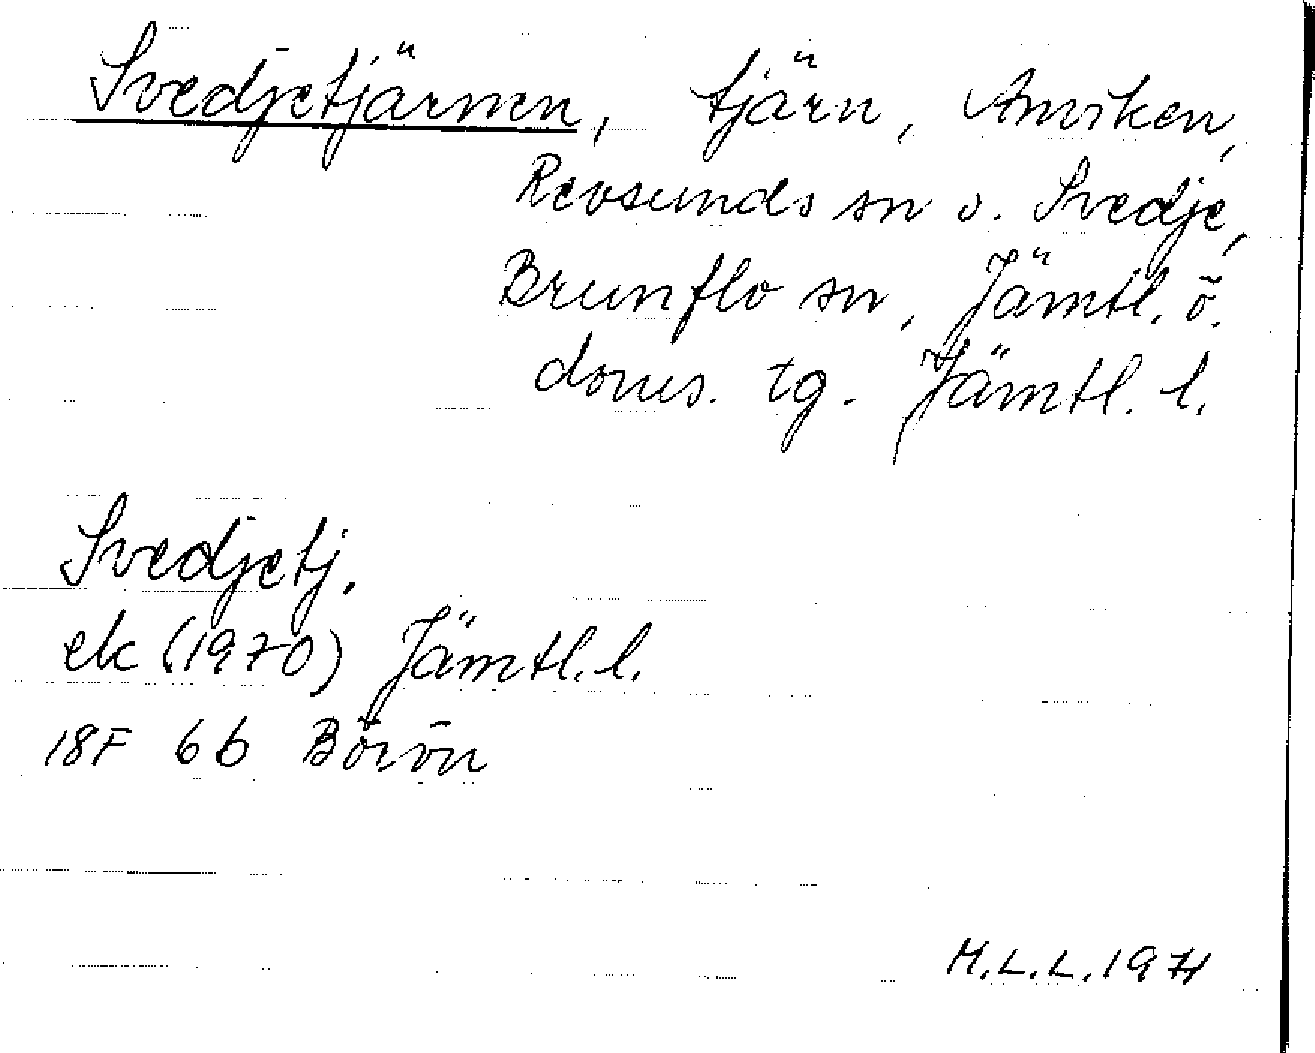 Svedjetjärnen, tjärn, Anviken,
Revsunds sn o. Svedje,
Brunflo sn, Jämtl. ö.
doms. tg. Jämtl. l.
Svedjetj.
ek (1970) Jämtl. l.
18F 6b Börön
M.L.L. 1971